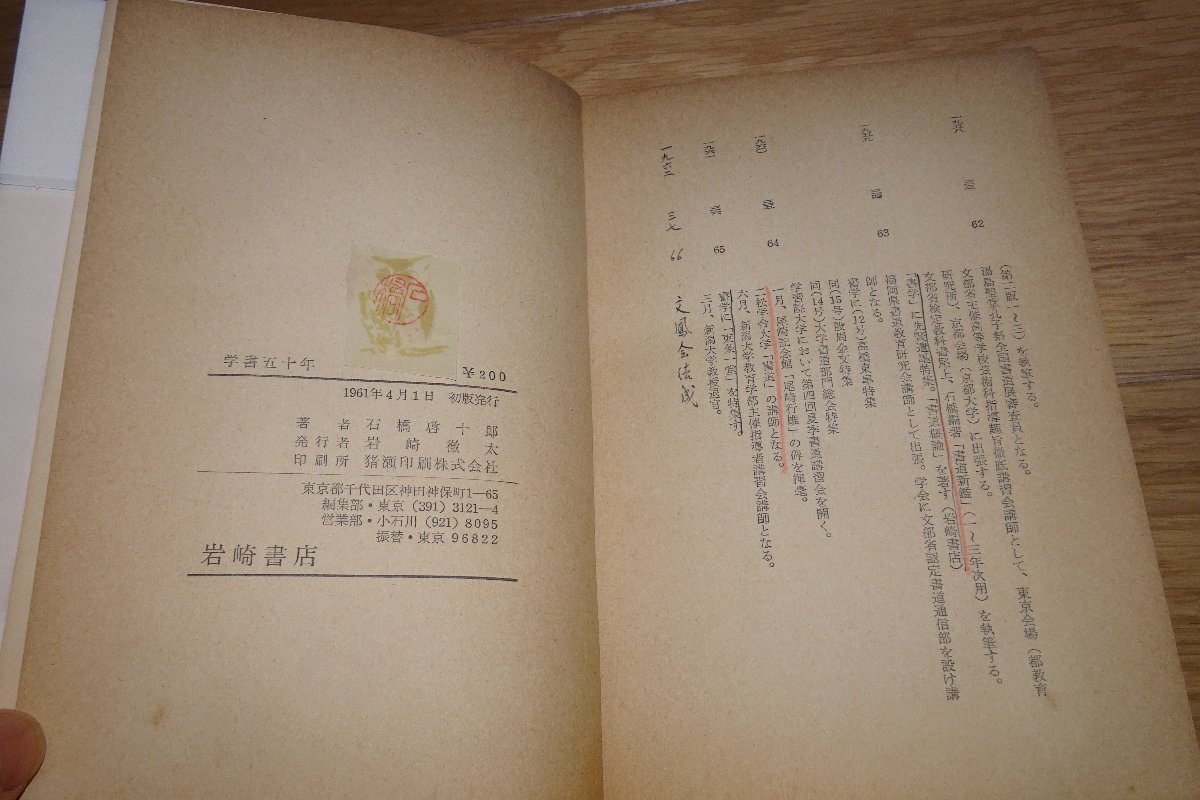 一九五八
三三
62
(第二版一〜三)を執筆する。
湯島聖堂孔子祭全国書道展審査員となる。
文部省主催高等学校芸術科指導趣旨徹底講習会講師として、東京会場(都教育
研究所)、京都会場(京都大学)に出張する。
文部省検定教科書尾上、石橋編著「書道新鑑」(一〜三年次用)を執筆する。
「書学」に先賢遺墨特集。「書道概論」を著す(岩崎書店)
一九五九
三四
63
福岡県書道教育研究会講師として出張。学会に文部省認定書道通信部を設け講
師となる。
書学に(12号)高橋東軍特集
同(15号)殷周金文特集
同(14号)大学書道部門総会特集
学習院大学において第四回夏季書道講習会を開く。
一九六〇
三五
64
一月、尾崎記念館「尾崎行雄」の碑を揮毫。
二松学舎大学「書道」の講師となる。
六月、新潟大学教育学部主催指導者講習会講師となる。
書学に「史案一堂」を特集す。
一九六一
三六
65
三月、新潟大学教授退官。
一九六二
三七
66
文鳳会結成
学書五十年
¥200
1961年4月1日 初版発行
著者 石橋啓十郎
発行者 岩崎徹太
印刷所 猪瀬印刷株式会社
東京都千代田区神田神保町1―65
編集部・東京(391)3121―4
営業部・小石川(921)8095
振替・東京96822
岩崎書店